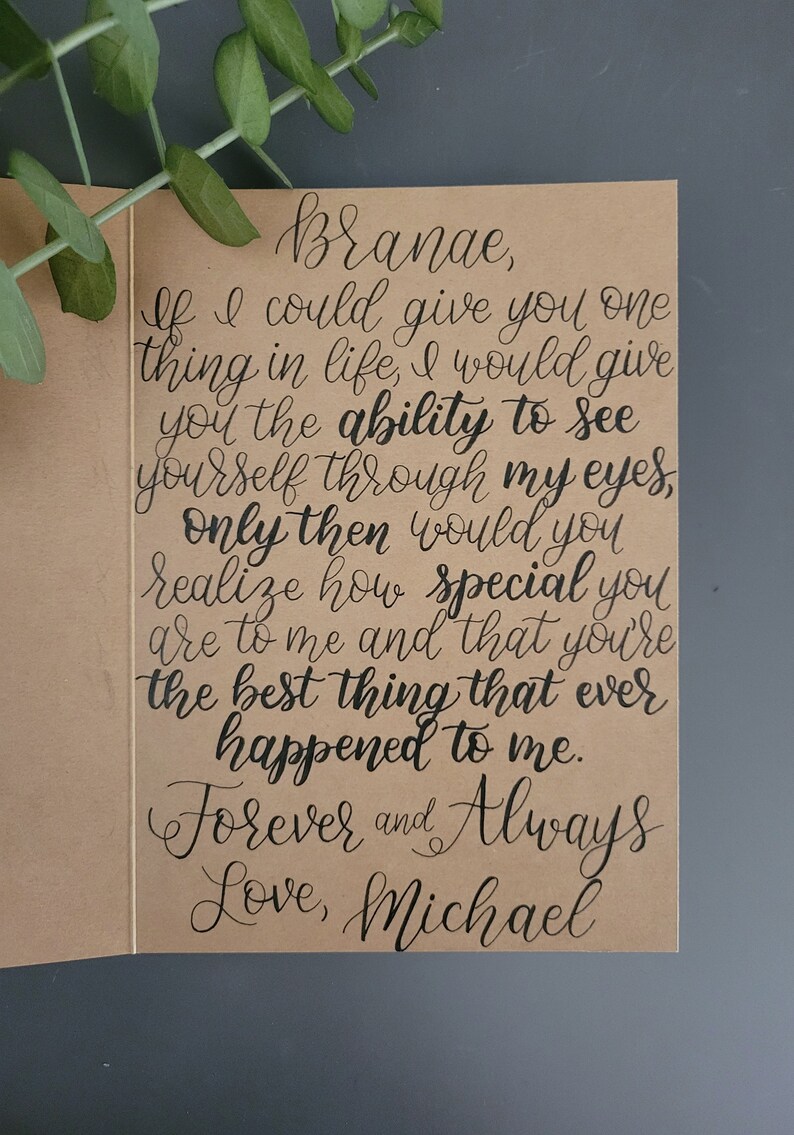 Branae,
If I could give you one
thing in life, I would give
you the ability to see
yourself through my eyes,
only then would you
realize how special you
are to me and that you're
the best thing that ever
happened to me.
Forever and Always
Love, Michael